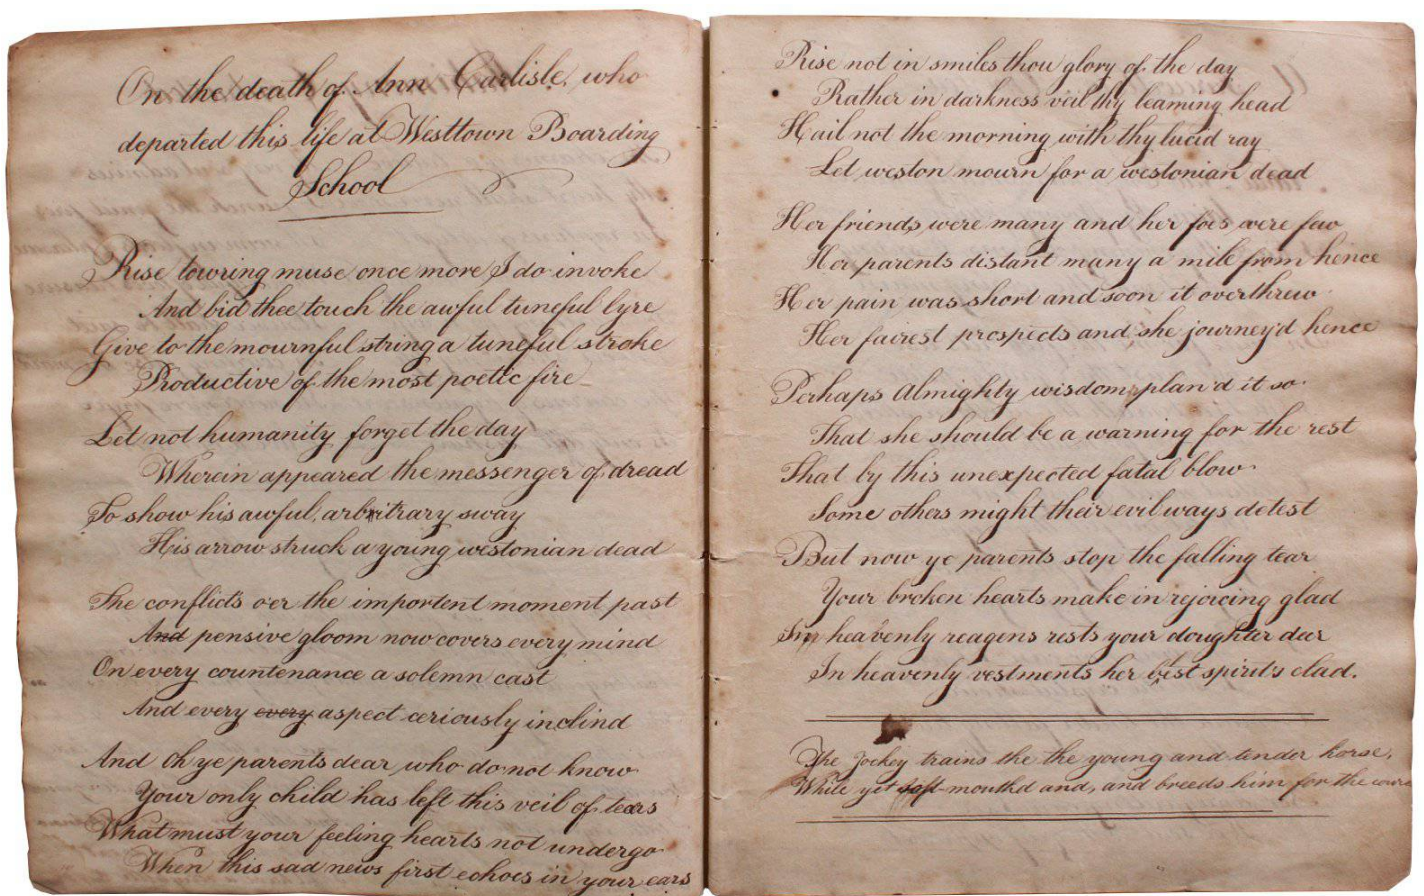 On the death of Ann Carlisle, who
departed this life at Westtown Boarding
School
Rise towring muse once more I do invoke
And bid thee touch the awful tuneful lyre
Give to the mournful string a tuneful stroke
Productive of the most poetic fire
Let not humanity forget the day
Wherein appeared the messenger of dread
To show his awful, arbitrary sway
His arrow struck a young westonian dead
The conflicts o'er the importent moment past
And pensive gloom now covers every mind
On every countenance a solemn cast
And every every aspect ceriously inclind
And Oh ye parents dear who do not know
Your only child has left this veil of tears
What must your feeling hearts not undergo
When this sad news first echoes in your ears
Rise not in smiles thou glory of the day
Rather in darkness veil thy beaming head
Hail not the morning with thy lucid ray
Let weston mourn for a westonian dead
Her friends were many and her foes were few
Her parents distant many a mile from hence
Her pain was short and soon it overthrew
Her fairest prospects and she journey'd hence
Perhaps Almighty wisdom plan'd it so
That she should be a warning for the rest
That by this unexpected fatal blow
Some others might their evil ways detest
But now ye parents stop the falling tear
Your broken hearts make in rejoicing glad
In heavenly reagens rests your doughter dear
In heavenly vestments her blest spirit's clad.
The Jockey trains the the young and tender horse,
While yet soft mouthd and, and breeds him for the course